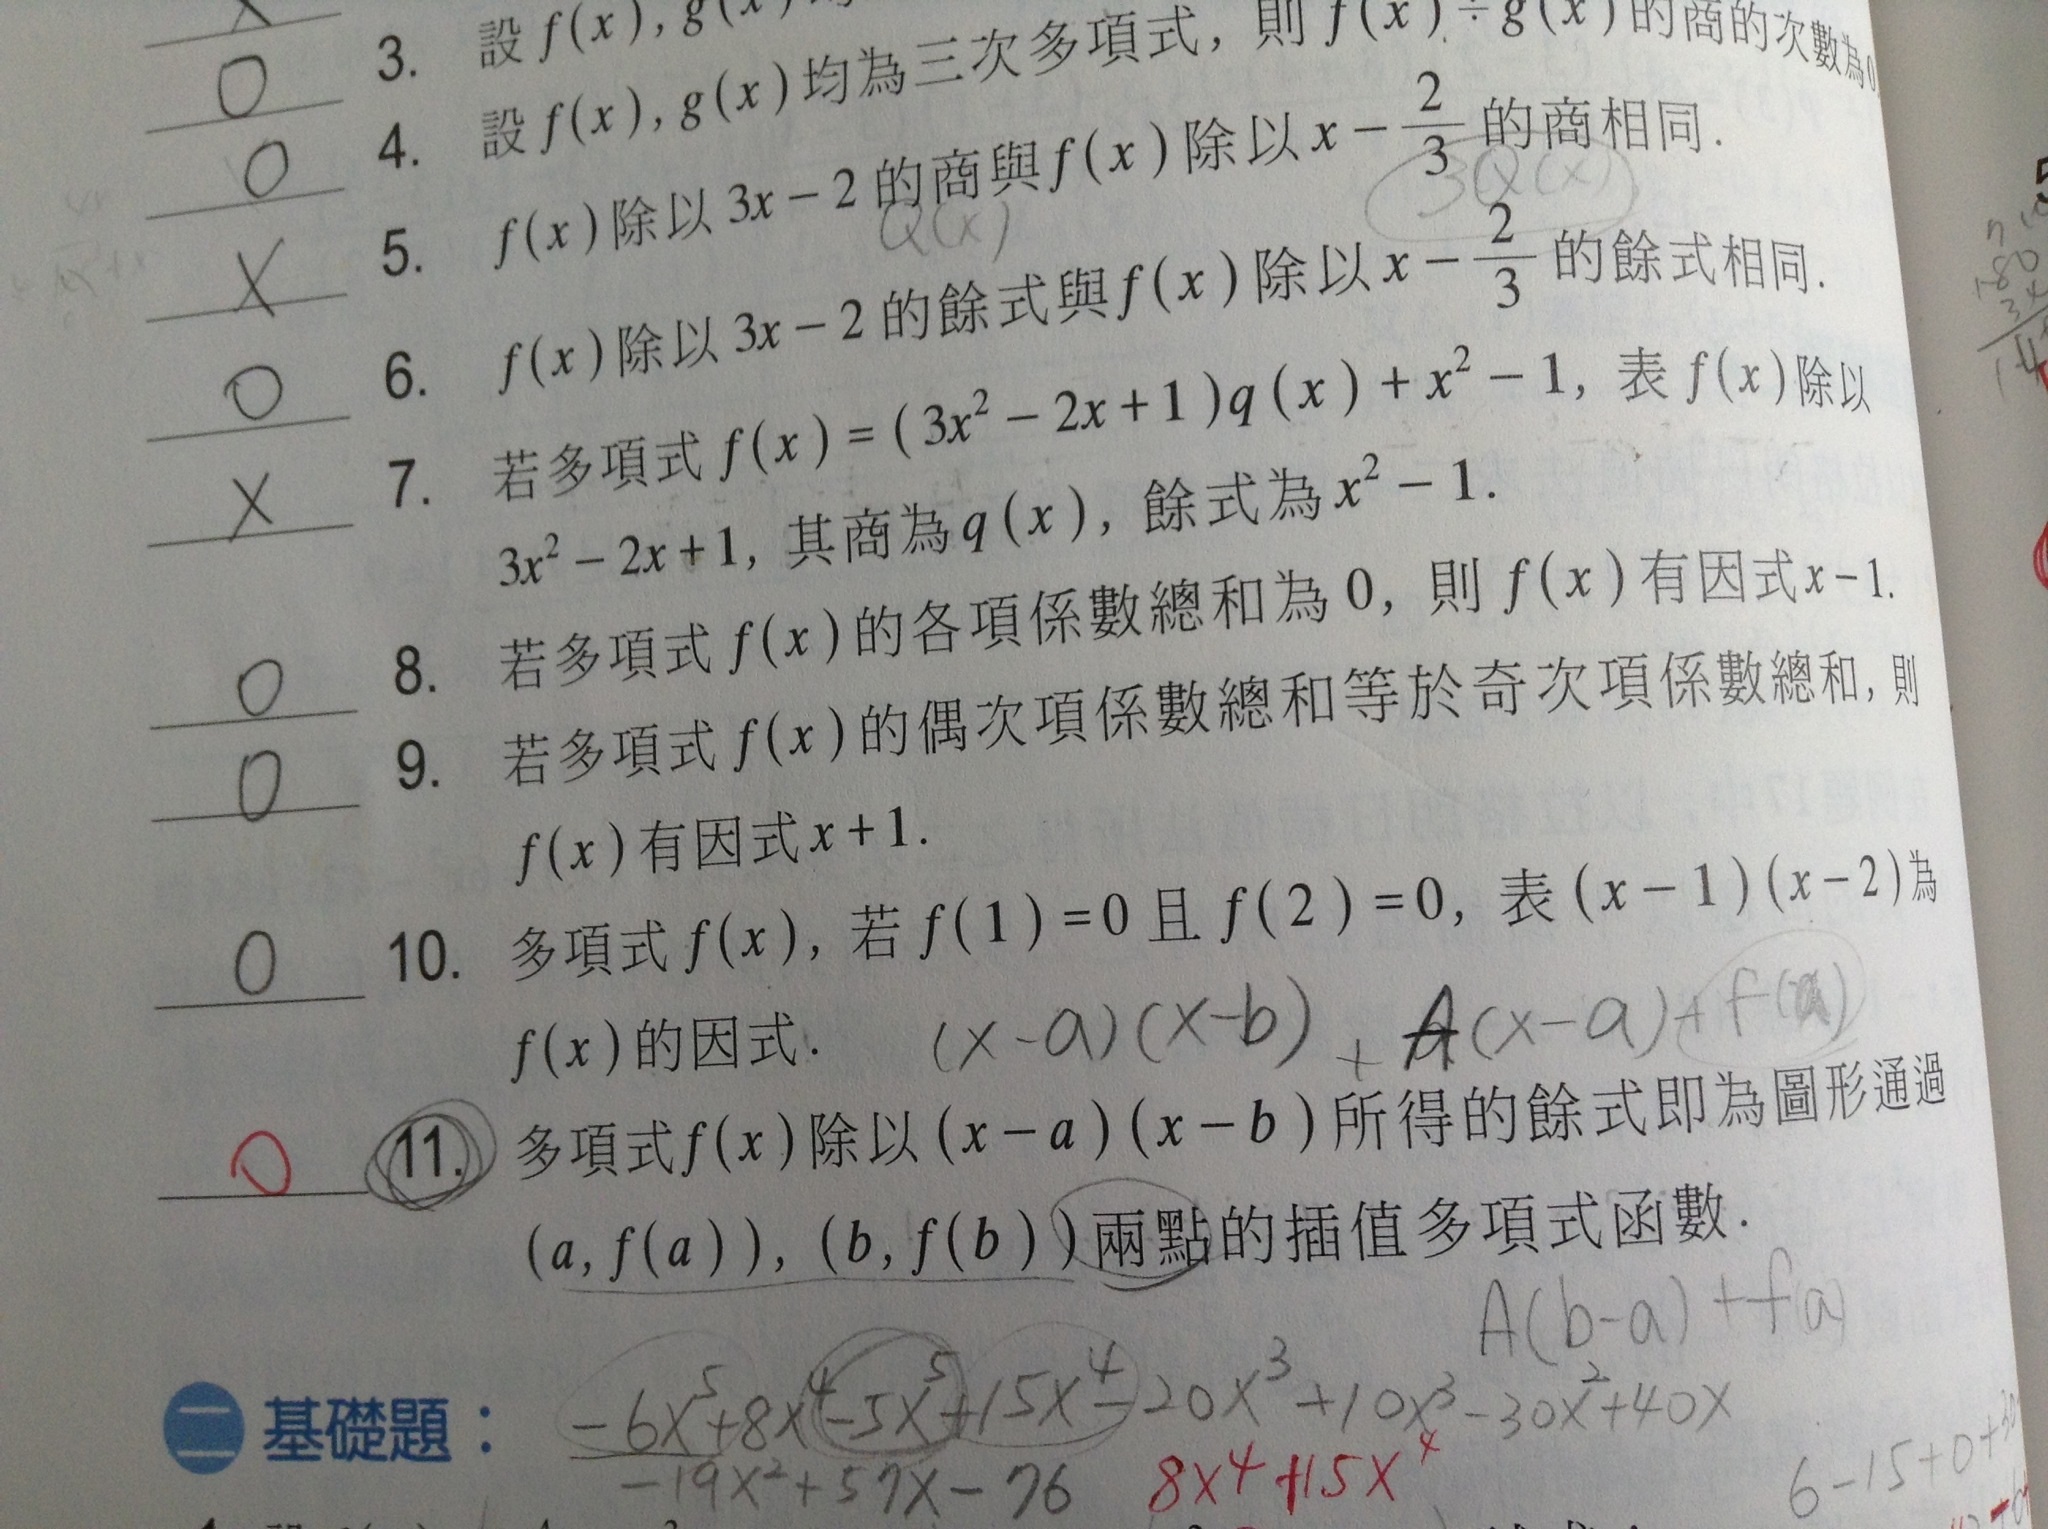 3. 設 f(x), g(x)
O 4. 設 f(x), g(x) 均為三次多項式, 則 f(x) ÷ g(x) 的商的次數為0
O
X 5. f(x) 除以 3x − 2 的商與 f(x) 除以 x − 2/3 的商相同.
Q(x) 3Q(x)
O 6. f(x) 除以 3x − 2 的餘式與 f(x) 除以 x − 2/3 的餘式相同.
X 7. 若多項式 f(x) = (3x² − 2x + 1)q(x) + x² − 1, 表 f(x) 除以
3x² − 2x + 1, 其商為 q(x), 餘式為 x² − 1.
O 8. 若多項式 f(x) 的各項係數總和為 0, 則 f(x) 有因式 x − 1.
O 9. 若多項式 f(x) 的偶次項係數總和等於奇次項係數總和, 則
f(x) 有因式 x + 1.
O 10. 多項式 f(x), 若 f(1) = 0 且 f(2) = 0, 表 (x − 1)(x − 2) 為
f(x) 的因式.
(x-a)(x-b) + A(x-a) + f(a)
O 11. 多項式 f(x) 除以 (x − a)(x − b) 所得的餘式即為圖形通過
(a, f(a)), (b, f(b)) 兩點的插值多項式函數.
A(b-a) + f(a)
二 基礎題：
-6x⁵+8x⁴-5x⁵+15x⁴-20x³+10x³-30x²+40x
-19x²+57x-76 8x⁴+15x⁴
6-15+0+